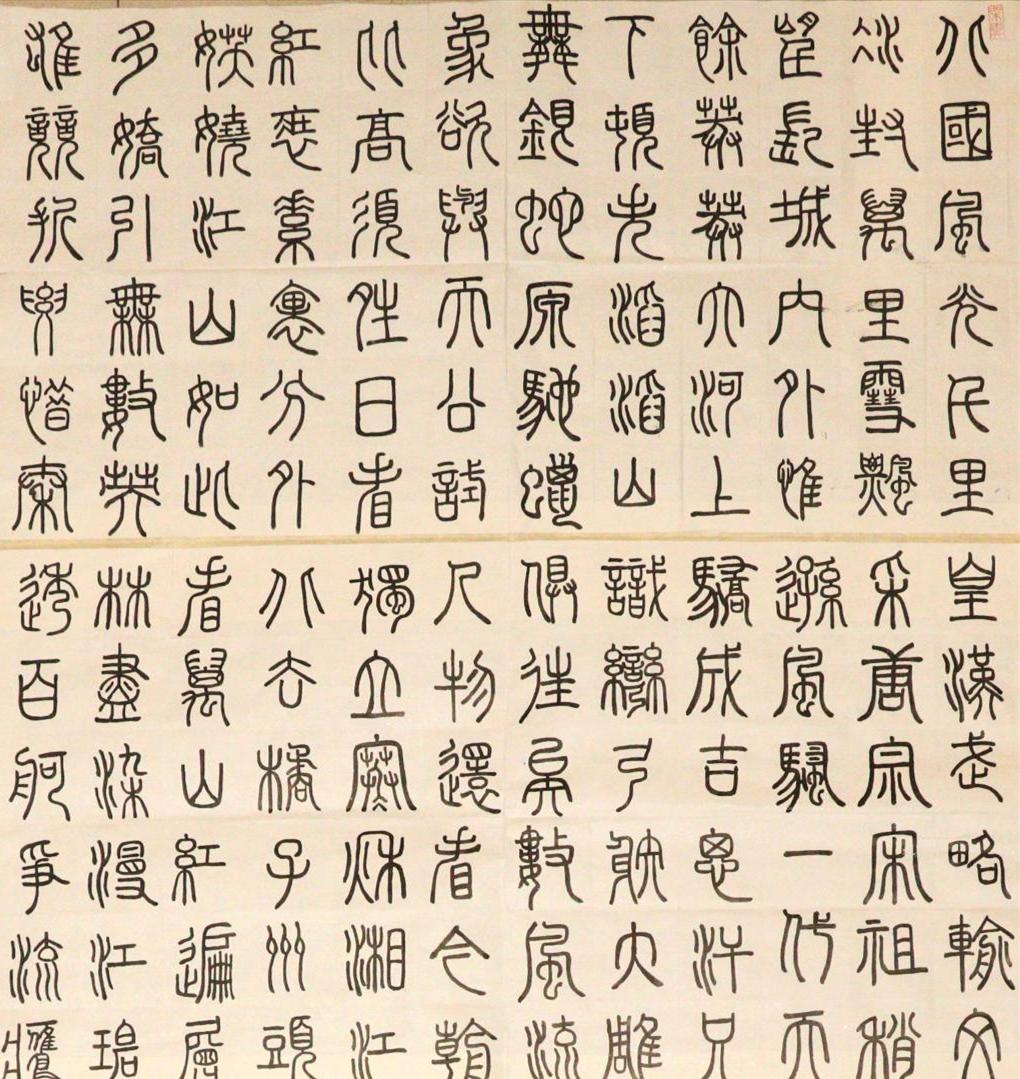 北國風光千里
冰封萬里雪飄
望長城內外惟
餘莽莽大河上
下頓失滔滔山
舞銀蛇原馳蠟
象欲與天公試
比高須晴日看
紅裝素裹分外
妖嬈江山如此
多嬌引無數英
雄競折腰惜秦
皇漢武略輸文
采唐宗宋祖稍
遜風騷一代天
驕成吉思汗只
識彎弓射大雕
俱往矣數風流
人物還看今朝
獨立寒秋湘江
北去橘子洲頭
看萬山紅遍層
林盡染漫江碧
透百舸爭流鷹